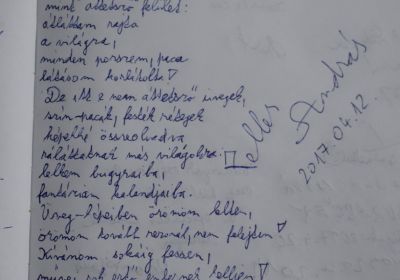 mint átlátszó felület:
átláttam rajta
a világra,
minden porszem, paca
látásom korlátolta
De itt e nem átlátszó üvegek,
szín-pacák, festék rétegek
képekké összeolvadva
ráláttatnak más világokra.
lelkem bugyraiba,
fantáziám kalandjaiba.
Üveg-képeiben örömöm lelem,
örömöm tovább rezonál, nem felejtem
Kívánom sokáig fessen,
Telles András
2017.04.12.